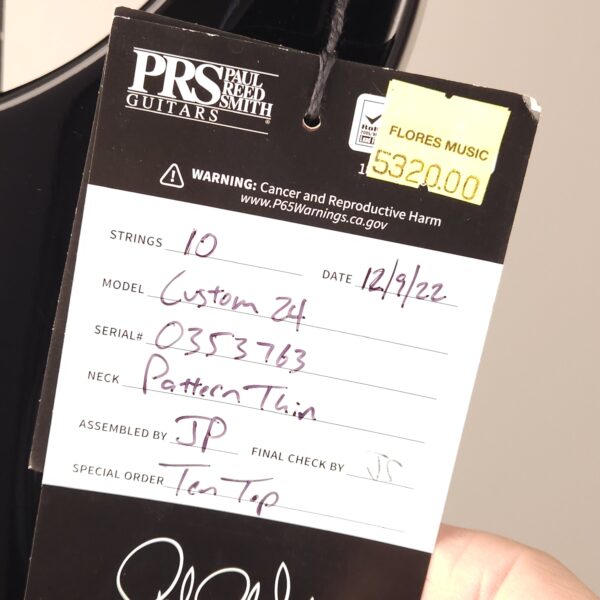 PRS PAUL REED SMITH
GUITARS
FLORES MUSIC
5320.00
WARNING: Cancer and Reproductive Harm
www.P65Warnings.ca.gov
STRINGS 10
DATE 12/9/22
MODEL Custom 24
SERIAL# 0353763
NECK Pattern Thin
ASSEMBLED BY JP
FINAL CHECK BY JS
SPECIAL ORDER Ten Top